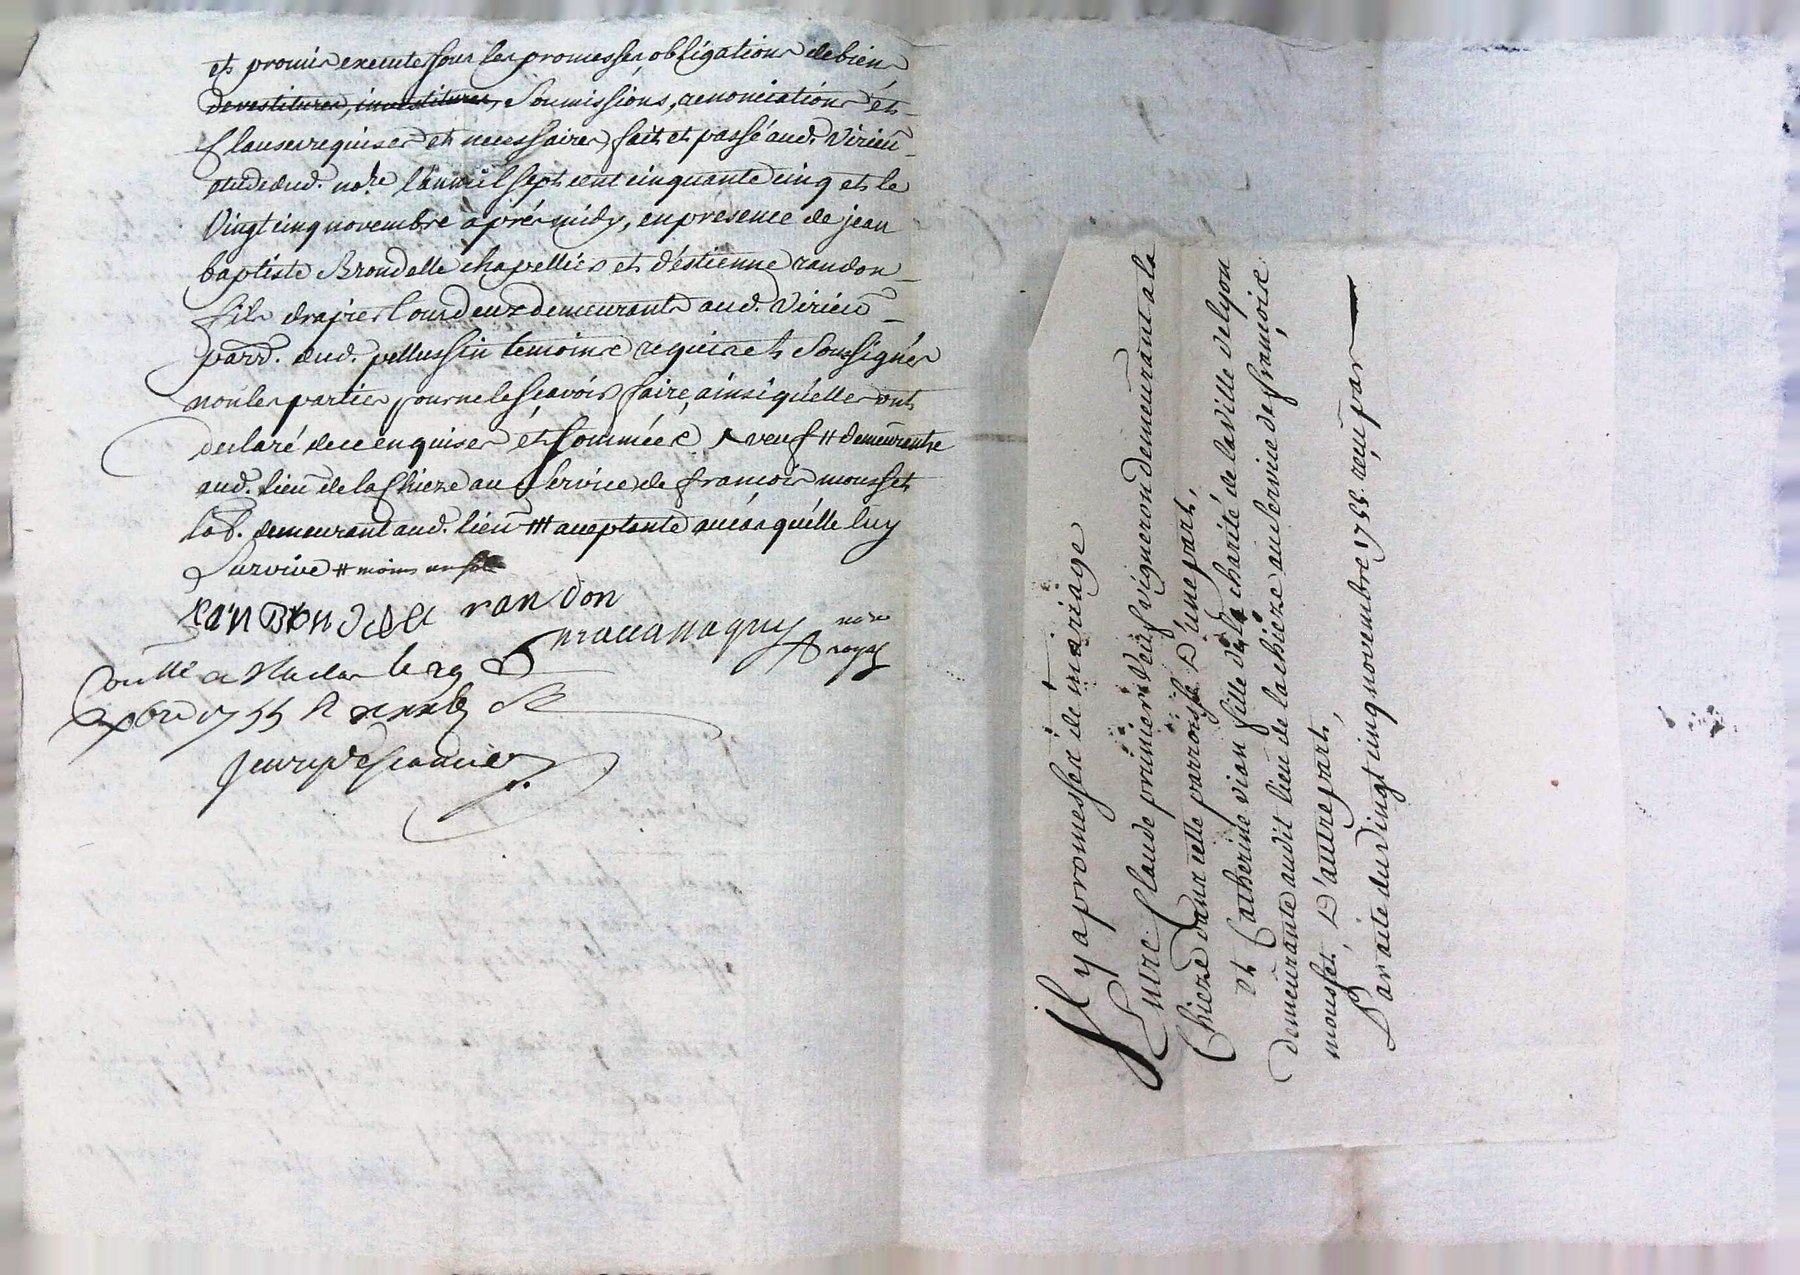 et promis executer sous les promesses, obligations de biens
devestitures, investitures, soumissions, renonciations et
clauses requises et necessaires, fait et passé aud. Virieu
etude dud. nore. l'an mil sept cent cinquante cinq et le
vingt cinq novembre après midy, en presence de jean
baptiste Brondelle chapellier et d'estienne randon
fils drapier tous deux demeurants aud. Virieu
parr. dud. pellussin temoins requis et soussignés
non les parties pour ne le sçavoir faire, ainsi qu'elles ont
declaré de ce enquises et sommées, veuf # demeurante
aud. lieu de la Chieze au service de françois mousset
lab. demeurant aud. lieu ### acceptante au cas qu'elle luy
survive # moins un
randon
nore
royal
1755
il y a promesses de mariage
Entre Claude primier veuf vigneron demeurant a la
Chieze dans cette parroisse D'une part,
et Catherine vian fille de la charité de la ville de lyon
demeurante audit lieu de la chieze au service de françois
mousset, D'autre part,
Par acte du vingt cinq novembre 1755. reçu par